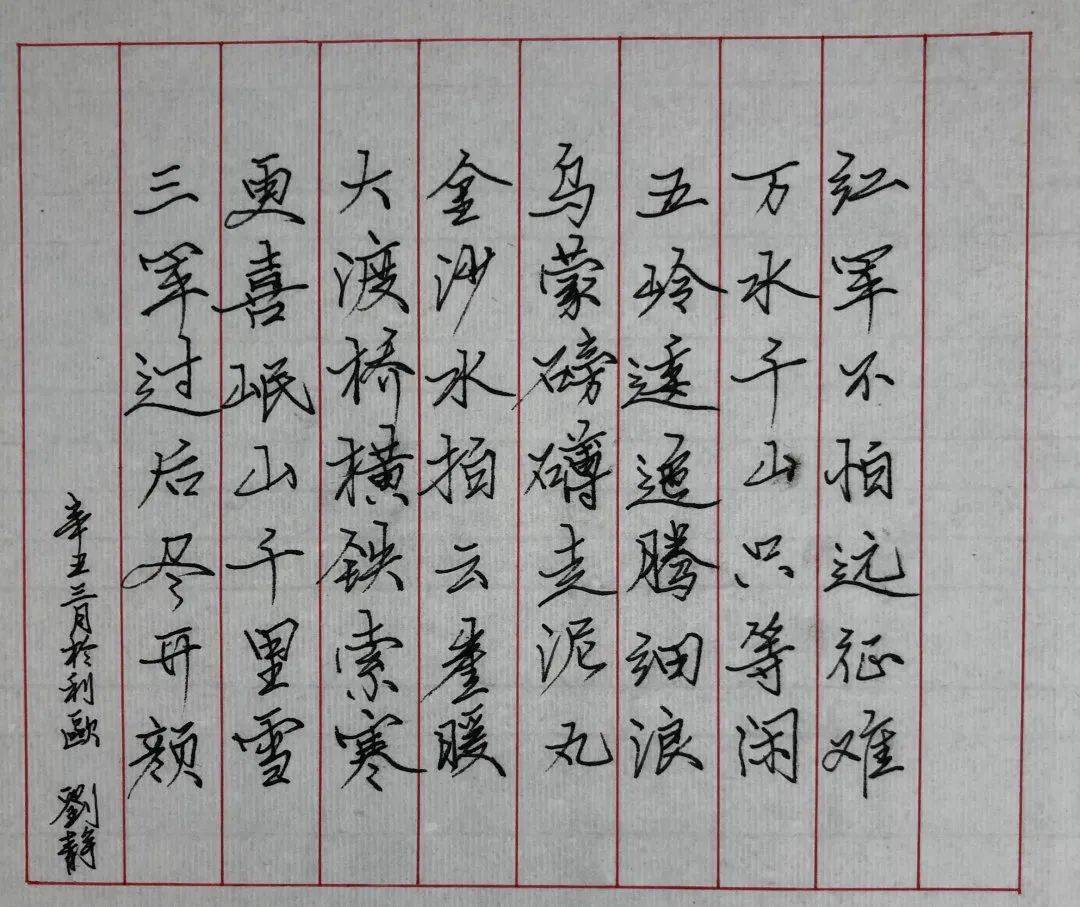 红军不怕远征难
万水千山只等闲
五岭逶迤腾细浪
乌蒙磅礴走泥丸
金沙水拍云崖暖
大渡桥横铁索寒
更喜岷山千里雪
三军过后尽开颜
辛丑三月於利歐 劉靜